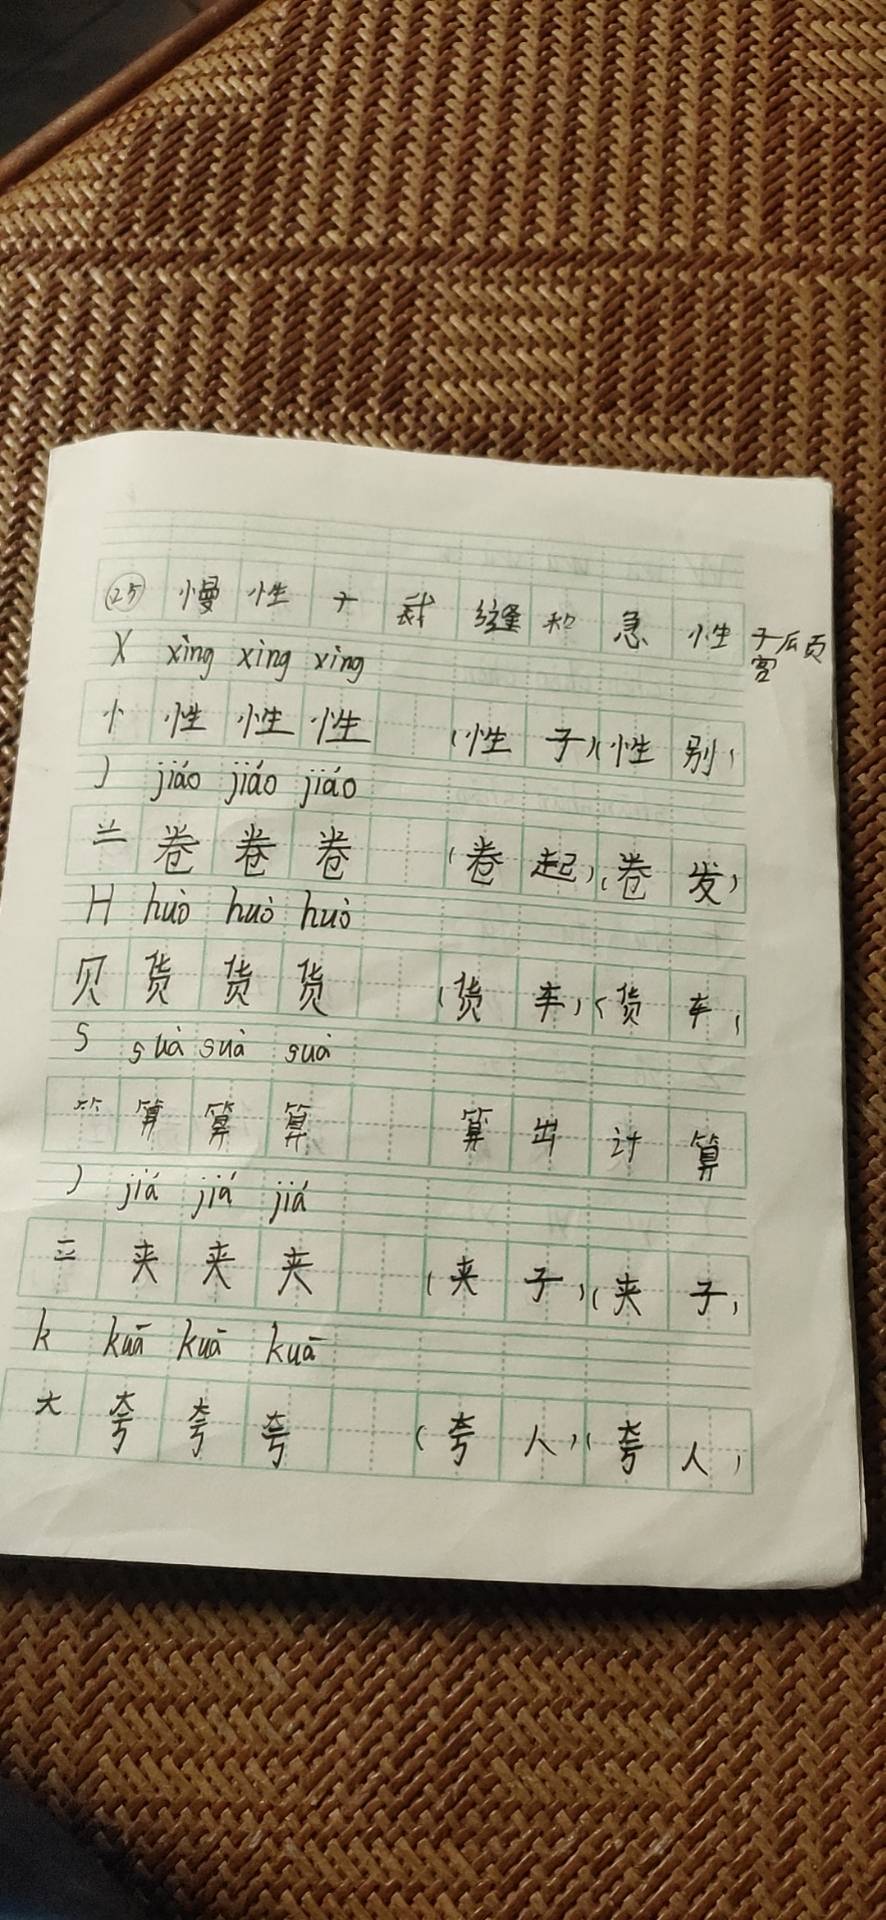 ㉕ 慢性子裁缝和急性子顾客
X xìng xìng xìng
忄 性 性 性 (性子)(性别)
J jiáo jiáo jiáo
卷 卷 卷 (卷起)(卷发)
H huò huò huò
贝 货 货 货 (货车)(货车)
S suà suà suà
⺮ 算 算 算 算出 计算
J jiá jiá jiá
夹 夹 夹 (夹子)(夹子)
k kuā kuā kuā
大 夸 夸 夸 (夸人)(夸人)